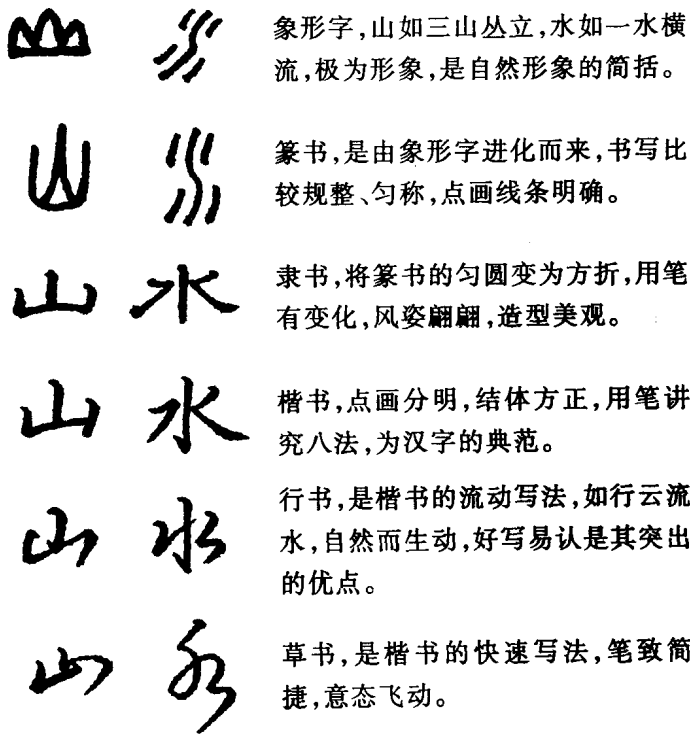 山 水 象形字,山如三山丛立,水如一水横
流,极为形象,是自然形象的简括。
山 水 篆书,是由象形字进化而来,书写比
较规整、匀称,点画线条明确。
山 水 隶书,将篆书的匀圆变为方折,用笔
有变化,风姿翩翩,造型美观。
山 水 楷书,点画分明,结体方正,用笔讲
究八法,为汉字的典范。
山 水 行书,是楷书的流动写法,如行云流
水,自然而生动,好写易认是其突出
的优点。
山 水 草书,是楷书的快速写法,笔致简
捷,意态飞动。